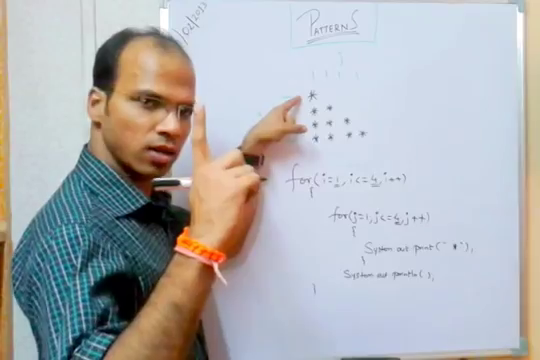 /02/2023
PATTERNS
j
1 1 1 1
*
* *
* * *
* * * *
for(i=1, i<=4, i++)
{
for(j=1, j<=4, j++)
{
System out print(" * "),
}
System out println( ),
}